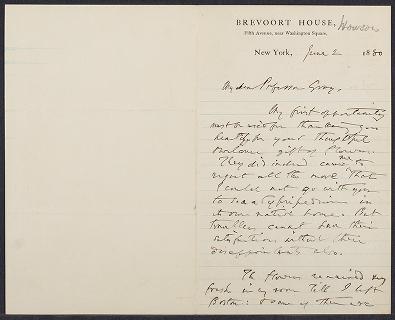 BREVOORT HOUSE,
Howson
Fifth Avenue, near Washington Square,
New York, June 2 1880
My dear Professor Gray,
My first opportunity
must be used for thanking you
heartily for your thoughtful
gift of flowers.
They did indeed cause me to
regret all the more that
I could not go with you
to see a Cypripedium in
its own native home. But
travellers cannot have their
satisfactions without their
disappointments also.
The flowers remained very
fresh in my room till I left
Boston: some of them are